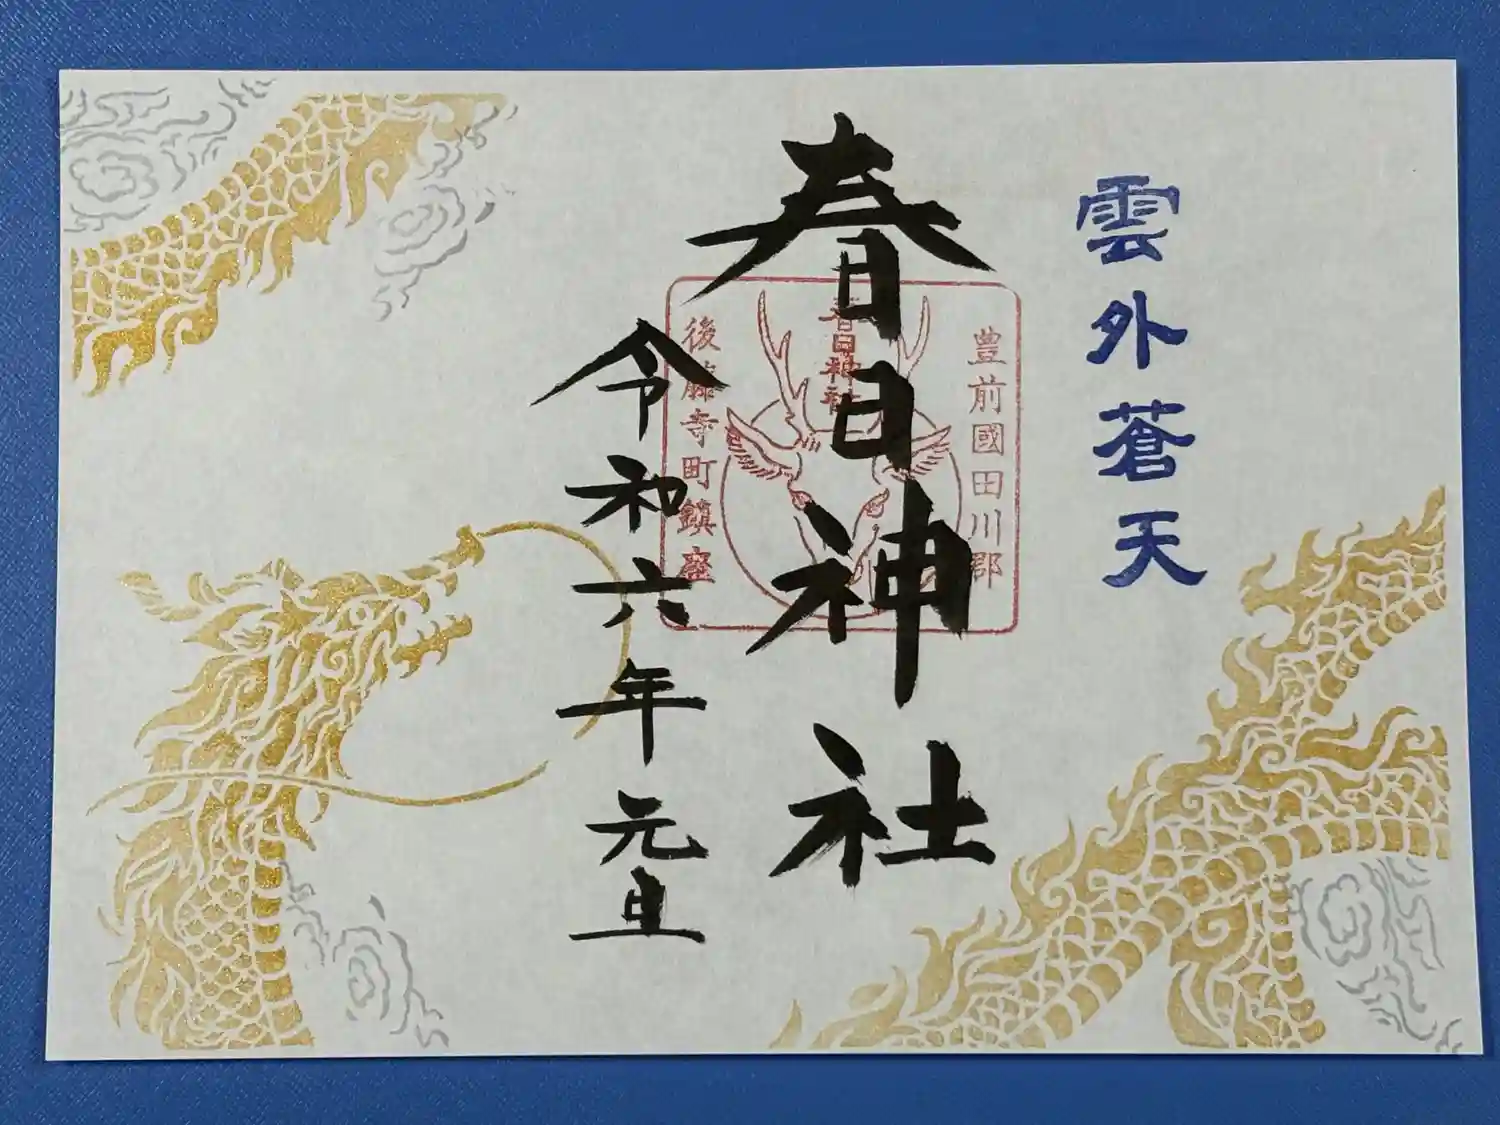 雲外蒼天
春日神社
豊前國田川郡
春日神社
後藤寺町鎮座
令和六年元旦